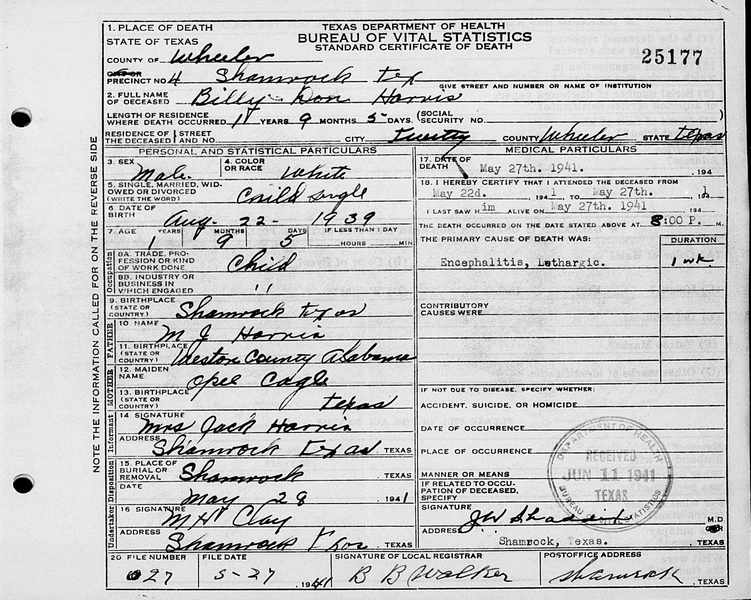 TEXAS DEPARTMENT OF HEALTH
BUREAU OF VITAL STATISTICS
STANDARD CERTIFICATE OF DEATH
25177
1. PLACE OF DEATH
STATE OF TEXAS
COUNTY OF Wheeler
CITY OR PRECINCT NO. 4 Shamrock Tex
GIVE STREET AND NUMBER OR NAME OF INSTITUTION
2. FULL NAME OF DECEASED Billy Don Harris
LENGTH OF RESIDENCE WHERE DEATH OCCURRED 1 YEARS 9 MONTHS 5 DAYS (SOCIAL SECURITY NO.
RESIDENCE OF THE DECEASED STREET AND NO. CITY Twitty COUNTY Wheeler STATE Texas
PERSONAL AND STATISTICAL PARTICULARS
3. SEX Male 4. COLOR OR RACE White
5. SINGLE, MARRIED, WIDOWED OR DIVORCED (WRITE THE WORD) Child single
6. DATE OF BIRTH Aug - 22 - 1939
7. AGE YEARS MONTHS DAYS IF LESS THAN 1 DAY
1 9 5 HOURS MIN
8A. TRADE, PROFESSION OR KIND OF WORK DONE Child
8B. INDUSTRY OR BUSINESS IN WHICH ENGAGED "
9. BIRTHPLACE (STATE OR COUNTRY) Shamrock Texas
10 NAME M J Harris
11. BIRTHPLACE (STATE OR COUNTRY) County Alabama
12. MAIDEN NAME Opel Cagle
13. BIRTHPLACE (STATE OR COUNTRY) Texas
14 SIGNATURE Mrs Jack Harris
ADDRESS Shamrock Texas TEXAS
15. PLACE OF BURIAL OR REMOVAL Shamrock
DATE May 28 1941
16 SIGNATURE M H Clay
ADDRESS Shamrock Texas TEXAS
Occupation
FATHER
MOTHER
Informant
Disposition
Undertaker
NOTE THE INFORMATION CALLED FOR ON THE REVERSE SIDE
MEDICAL PARTICULARS
17. DATE OF DEATH May 27th. 1941. 194
18. I HEREBY CERTIFY THAT I ATTENDED THE DECEASED FROM
May 22d. 194 1, TO May 27th. 194 1
I LAST SAW H im ALIVE ON May 27th. 1941 194
THE DEATH OCCURRED ON THE DATE STATED ABOVE AT 8:00 P. M.
THE PRIMARY CAUSE OF DEATH WAS: DURATION
Encephalitis, Lethargic. 1 wk
CONTRIBUTORY CAUSES WERE:
IF NOT DUE TO DISEASE, SPECIFY WHETHER:
ACCIDENT, SUICIDE, OR HOMICIDE
DATE OF OCCURRENCE
PLACE OF OCCURRENCE
MANNER OR MEANS
IF RELATED TO OCCUPATION OF DECEASED, SPECIFY
SIGNATURE J W M.D.
ADDRESS Shamrock, Texas. TEXAS
DEPARTMENT OF HEALTH
RECEIVED
JUN 11 1941
TEXAS
BUREAU OF VITAL STATISTICS
20 FILE NUMBER FILE DATE SIGNATURE OF LOCAL REGISTRAR POSTOFFICE ADDRESS
27 5-27 1941 B B Walker Shamrock TEXAS